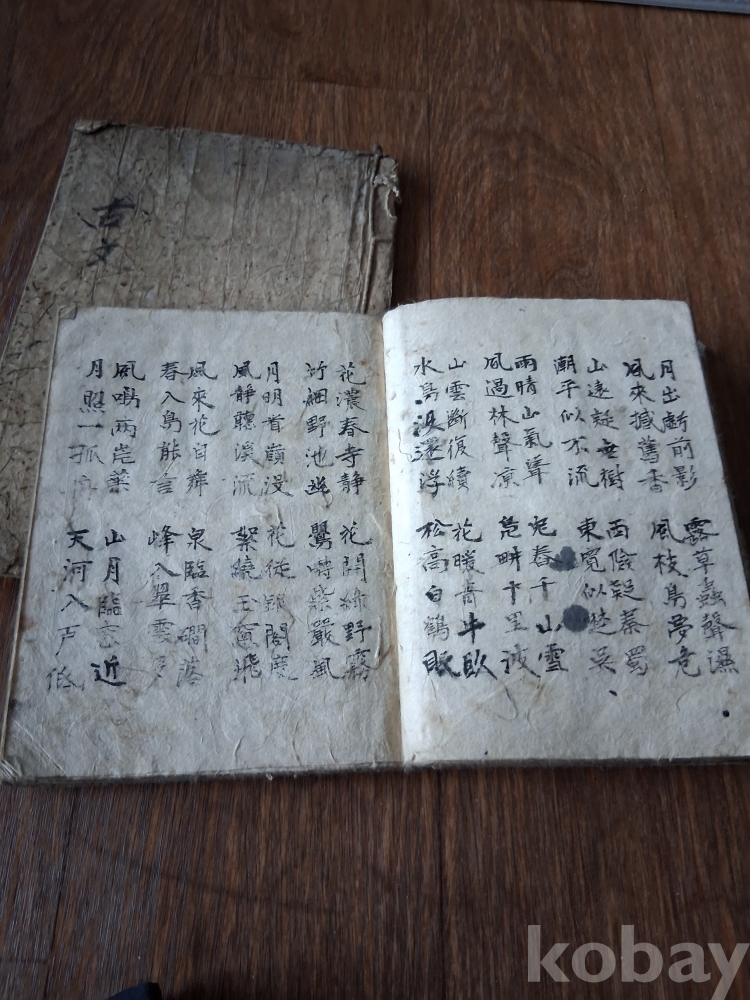 古文
月出虧前影
風來撼舊香
山遠疑無樹
潮平似不流
雨晴山氣聳
風過林聲凉
山雲斷復續
水鳥沒還浮
露草蟲聲濕
風枝鳥夢危
西險疑秦蜀
東寬似楚吳
舂千山雪
鳧畊十里波
花暖青牛臥
松高白鶴眠
花濃春寺靜
竹細野池幽
月明首嶺沒
風靜聽溪流
風來花自舞
春入鳥能言
風鳴兩岸葉
月照一孤舟
花開綺野霧
鶯啼紫嚴風
花徒錦閣度
絮繞玉窓飛
泉臨香磵落
峰入翠霞多
山月臨窓近
天河入戶低
kobay